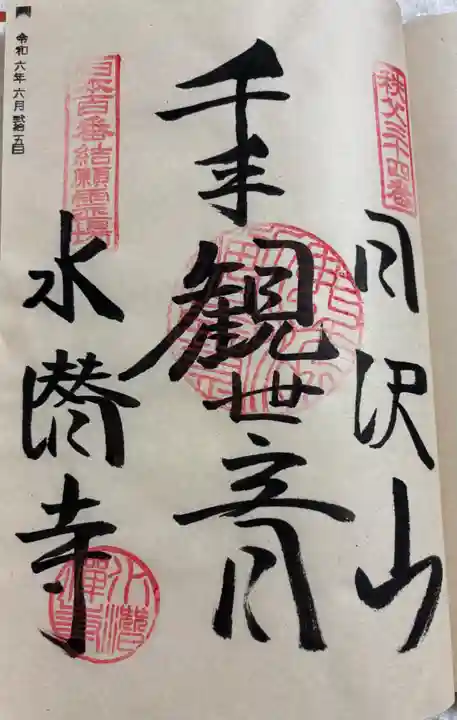 秩父三十四番
日沢山
千手観世音
日本百番結願霊場
水潜寺
令和六年六月弐拾五日